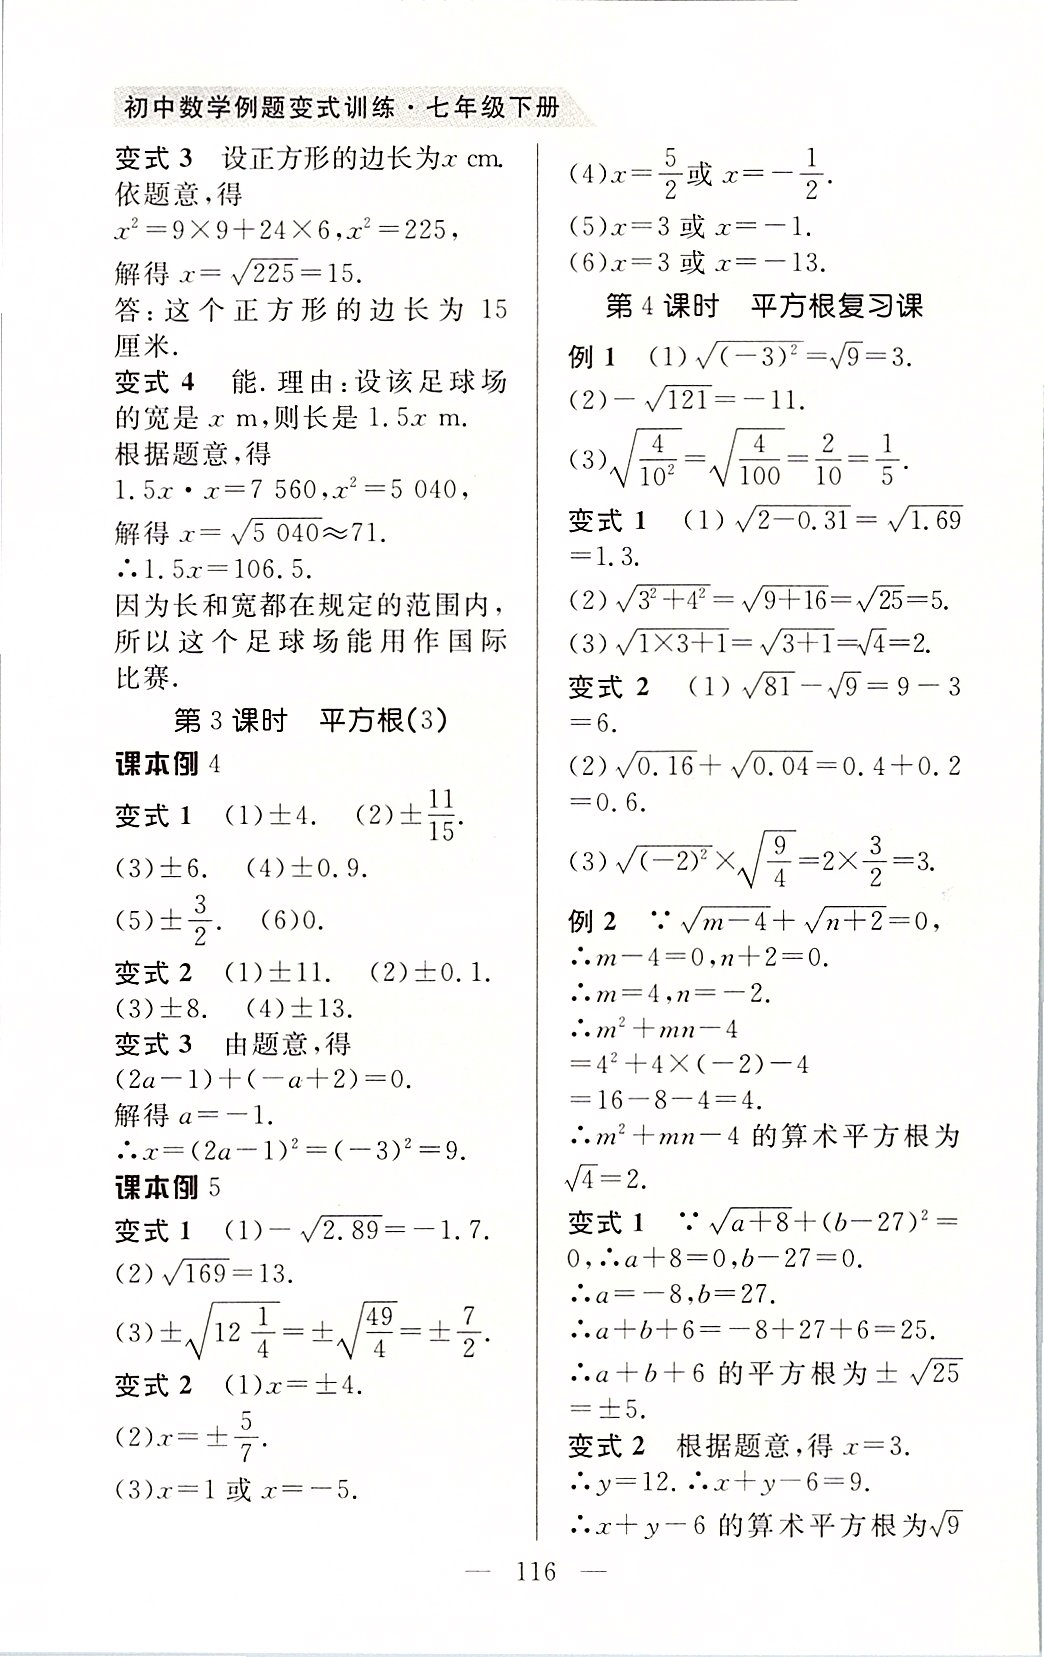 初中数学例题变式训练·七年级下册
变式 3 设正方形的边长为x cm.
依题意,得
x²=9×9+24×6,x²=225,
解得 x=√225=15.
答:这个正方形的边长为 15
厘米.
变式 4 能.理由:设该足球场
的宽是 x m,则长是 1.5x m.
根据题意,得
1.5x·x=7 560,x²=5 040,
解得 x=√5 040≈71.
∴1.5x=106.5.
因为长和宽都在规定的范围内,
所以这个足球场能用作国际
比赛.
第 3 课时 平方根(3)
课本例 4
变式 1 (1)±4. (2)±11/15.
(3)±6. (4)±0.9.
(5)±3/2. (6)0.
变式 2 (1)±11. (2)±0.1.
(3)±8. (4)±13.
变式 3 由题意,得
(2a-1)+(-a+2)=0.
解得 a=-1.
∴x=(2a-1)²=(-3)²=9.
课本例 5
变式 1 (1)-√2.89=-1.7.
(2)√169=13.
(3)±√(12 1/4)=±√(49/4)=±7/2.
变式 2 (1)x=±4.
(2)x=±5/7.
(3)x=1 或 x=-5.
(4)x=5/2或 x=-1/2.
(5)x=3 或 x=-1.
(6)x=3 或 x=-13.
第 4 课时 平方根复习课
例 1 (1)√(-3)²=√9=3.
(2)-√121=-11.
(3)√(4/10²)=√(4/100)=2/10=1/5.
变式 1 (1)√(2-0.31)=√1.69
=1.3.
(2)√(3²+4²)=√(9+16)=√25=5.
(3)√(1×3+1)=√(3+1)=√4=2.
变式 2 (1)√81-√9=9-3
=6.
(2)√0.16+√0.04=0.4+0.2
=0.6.
(3)√(-2)²×√(9/4)=2×3/2=3.
例 2 ∵√(m-4)+√(n+2)=0,
∴m-4=0,n+2=0.
∴m=4,n=-2.
∴m²+mn-4
=4²+4×(-2)-4
=16-8-4=4.
∴m²+mn-4 的算术平方根为
√4=2.
变式 1 ∵√(a+8)+(b-27)²=
0,∴a+8=0,b-27=0.
∴a=-8,b=27.
∴a+b+6=-8+27+6=25.
∴a+b+6 的平方根为±√25
=±5.
变式 2 根据题意,得 x=3.
∴y=12.∴x+y-6=9.
∴x+y-6 的算术平方根为√9
— 116 —